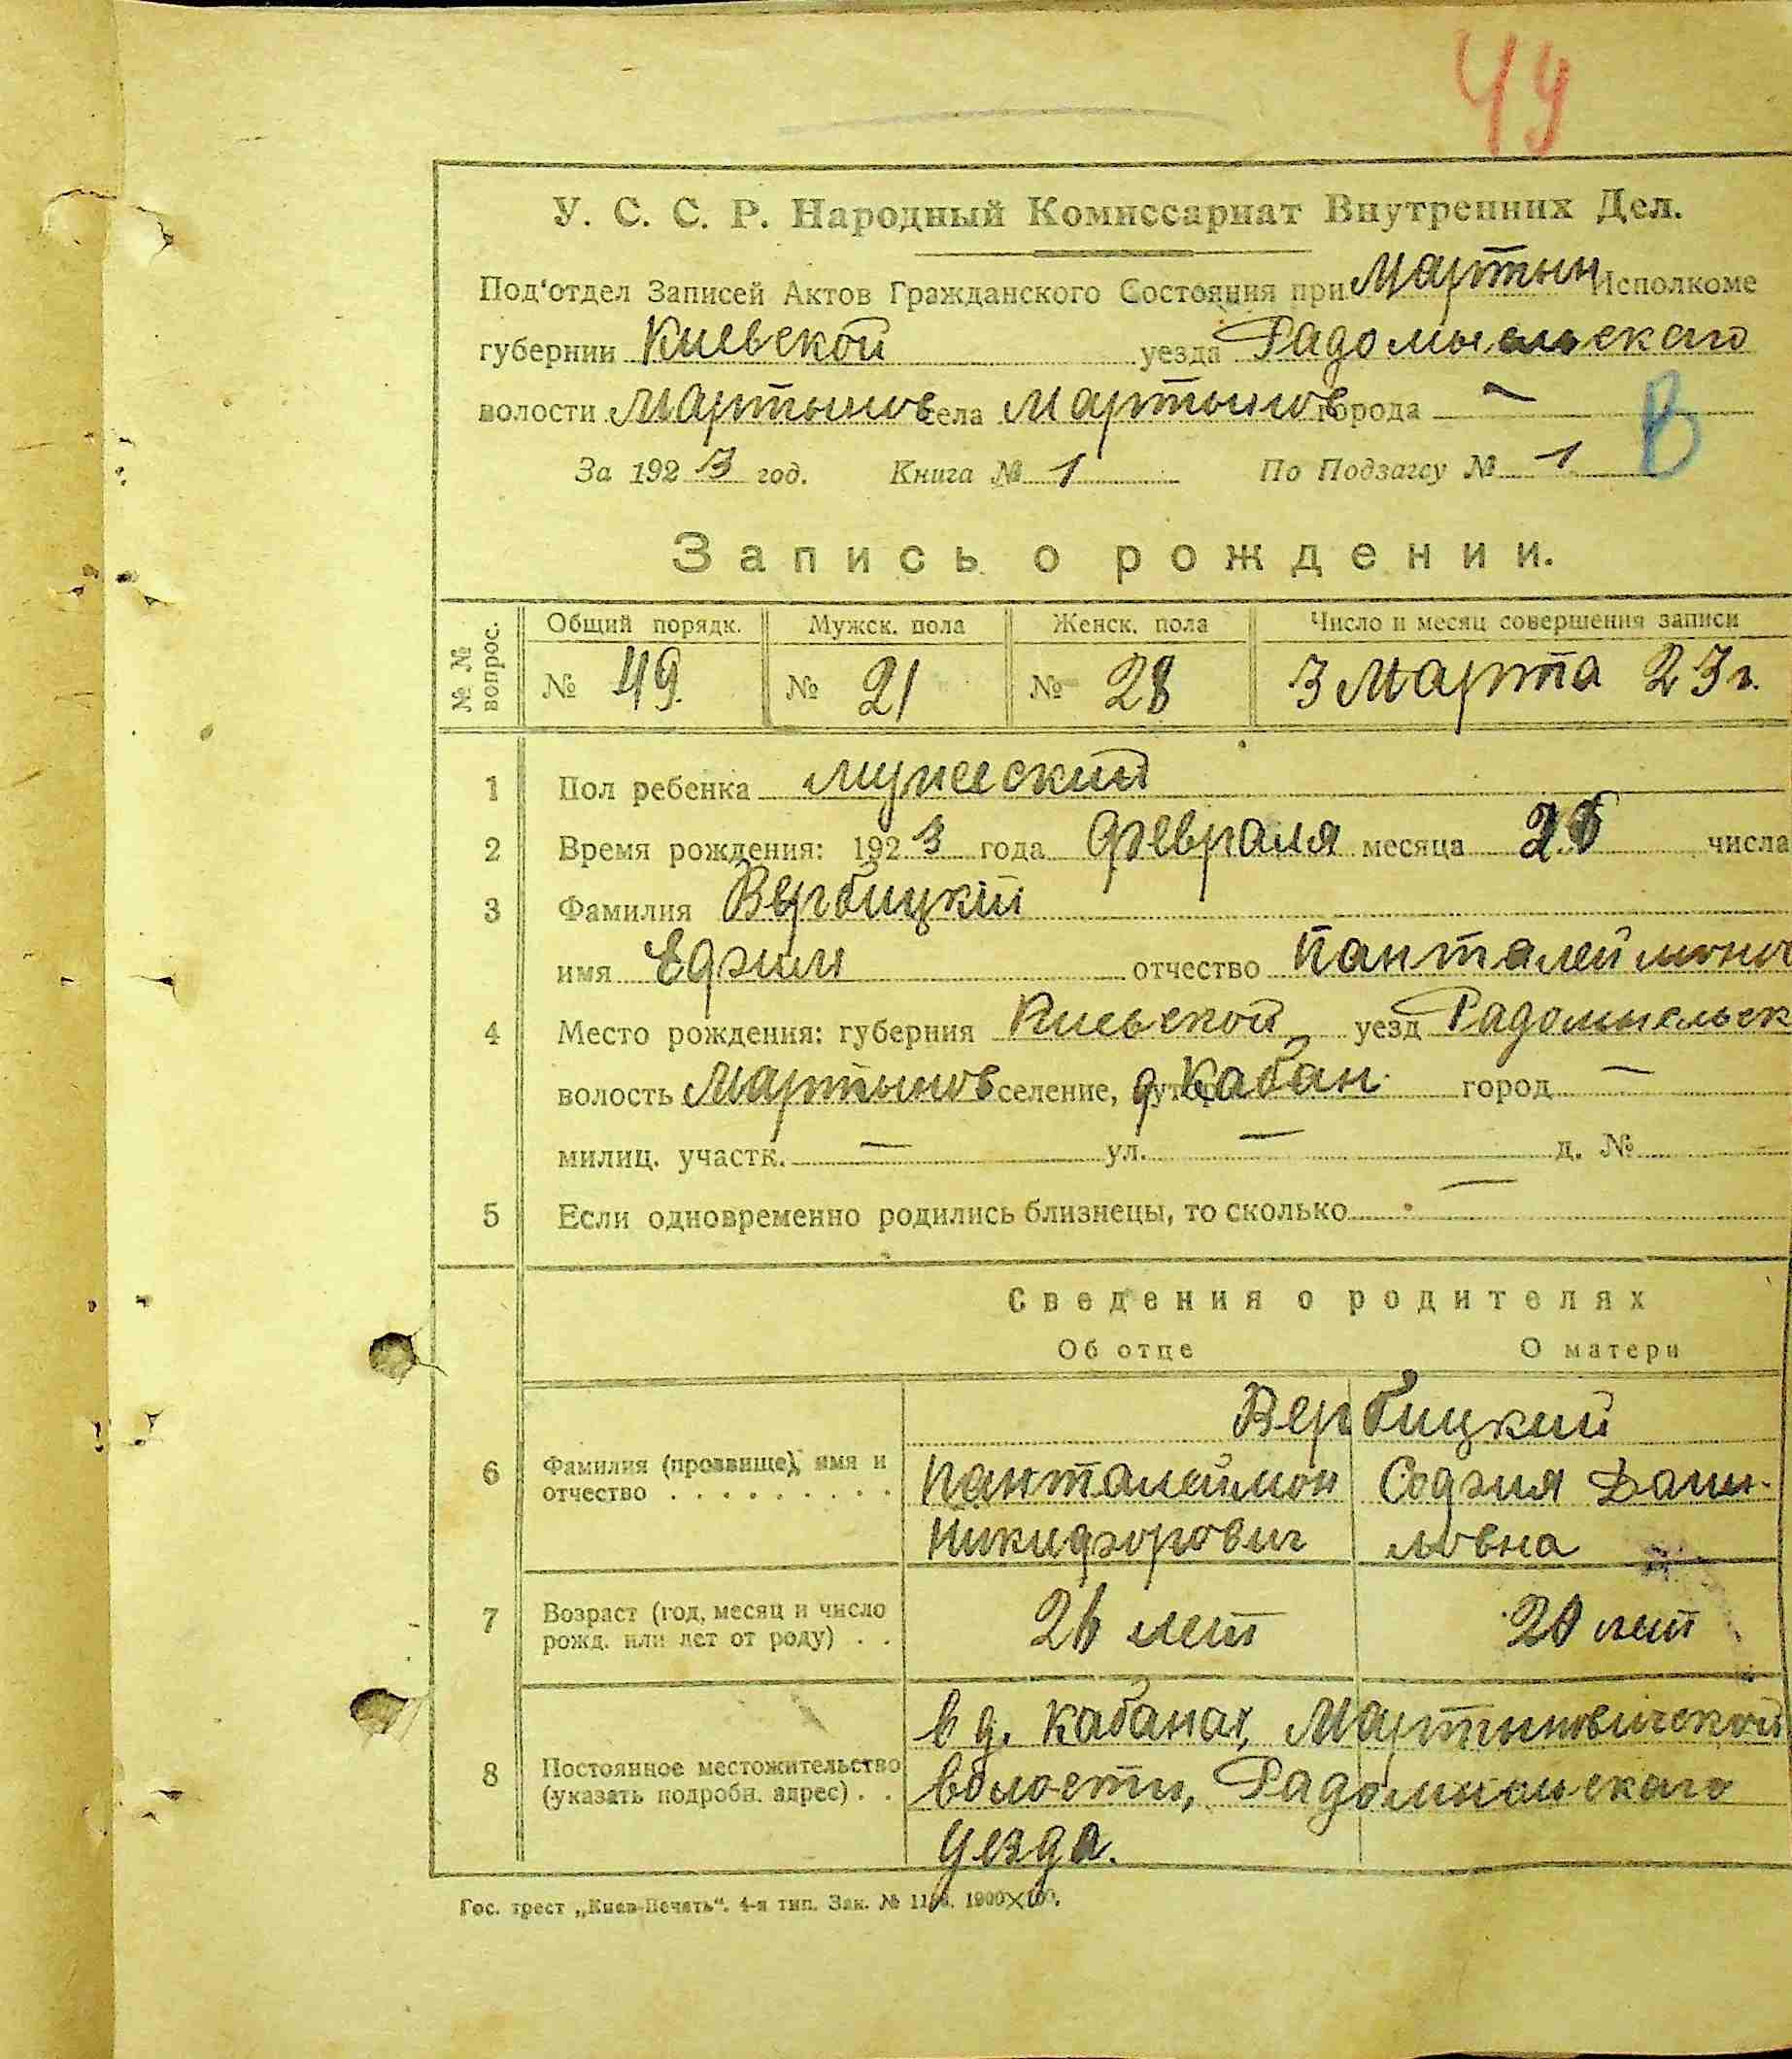 49
У. С. С. Р. Народный Комиссариат Внутренних Дел.
Под‘отдел Записей Актов Гражданского Состояния при Мартын Исполкоме
губернии Киевской уезда Радомысльскаго
волости Мартынов села Мартынов города —
В
За 1923 год. Книга № 1 По Подзагсу № 1
Запись о рождении.
№ № вопрос.
Общий порядк. Мужск. пола Женск. пола Число и месяц совершения записи
№ 49. № 21 № 28 3 Марта 23 г.
1 Пол ребенка мужеский
2 Время рождения: 1923 года февраля месяца числа
3 Фамилия Вербицкій
имя Ефим отчество Панталеймонов
4 Место рождения: губерния Киевской уезд Радомысльск
волость Мартынов селение, хутор д Кабан. город —
милиц. участк. — ул. — д. №
5 Если одновременно родились близнецы, то сколько —
Сведения о родителях
Об отце О матери
Вербицкий
6 Фамилия (прозвище), имя и отчество Панталеймон Софзия Дани-
Никифорович ловна
7 Возраст (год, месяц и число рожд. или лет от роду) 26 лет 20 лет
в д. Кабанах, Мартыновичской
8 Постоянное местожительство (указать подробн. адрес) волости, Радомысльскаго
уезда.
Гос. трест „Киев-Печать“. 4-я тип. Зак. №